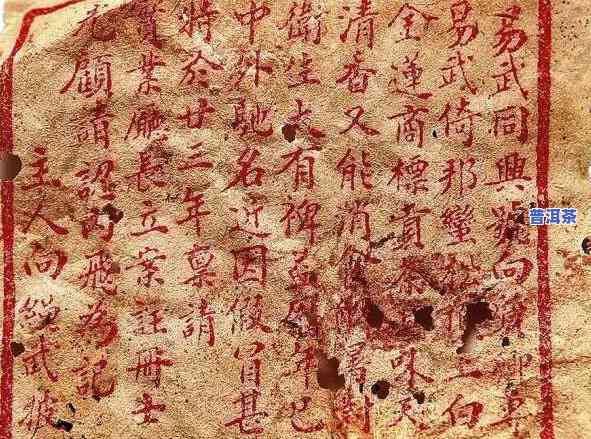 易武同興號向辦
易武倚那蠻上白
金蓮商標貢茶味天
清香又能消食解暑對
衛生大有裨益年已
中外馳名近因假冒甚
特於廿三年稟請
實業廳長立案註冊士
光顧請認內飛為記
主人向繩武披
普洱茶